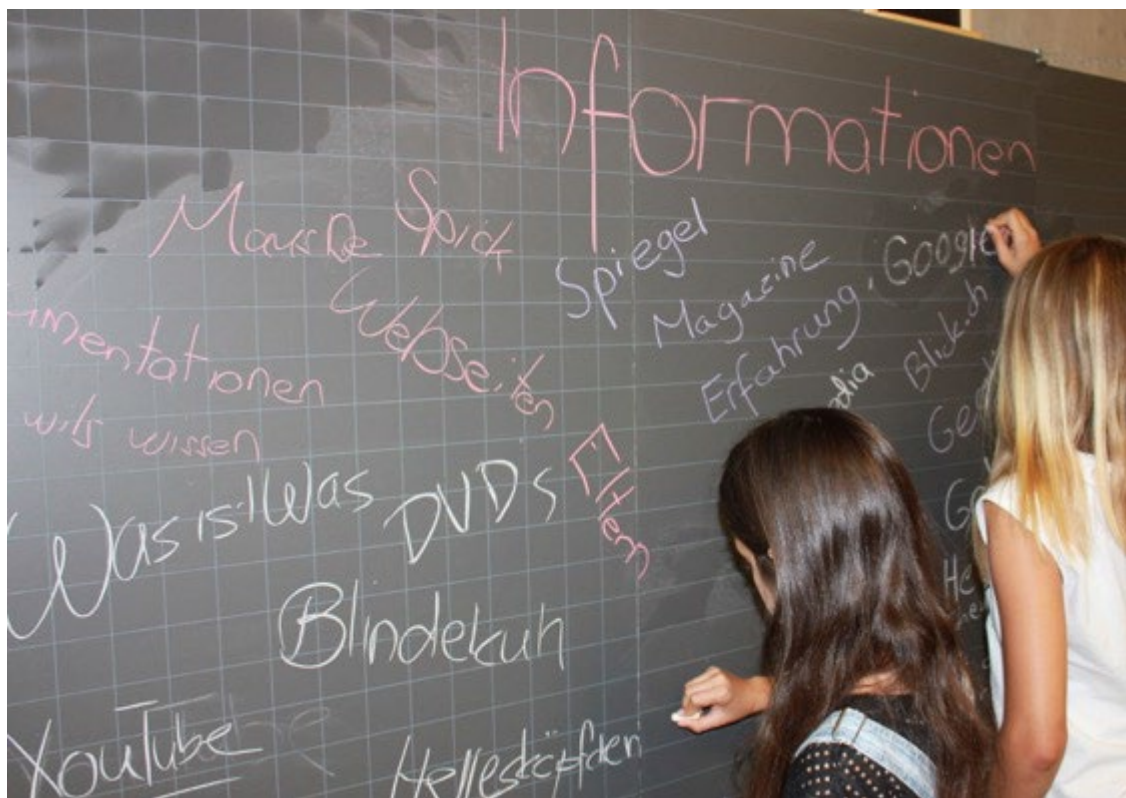 Informationen
Maus.De Spick
Spiegel
Magazine
Google
Webseiten
Erfahrung,
Blick.ch
imentationen
wils wissen
Eltern
Was ist Was
DVDs
Blindekuh
YouTube
Hellesköpfchen